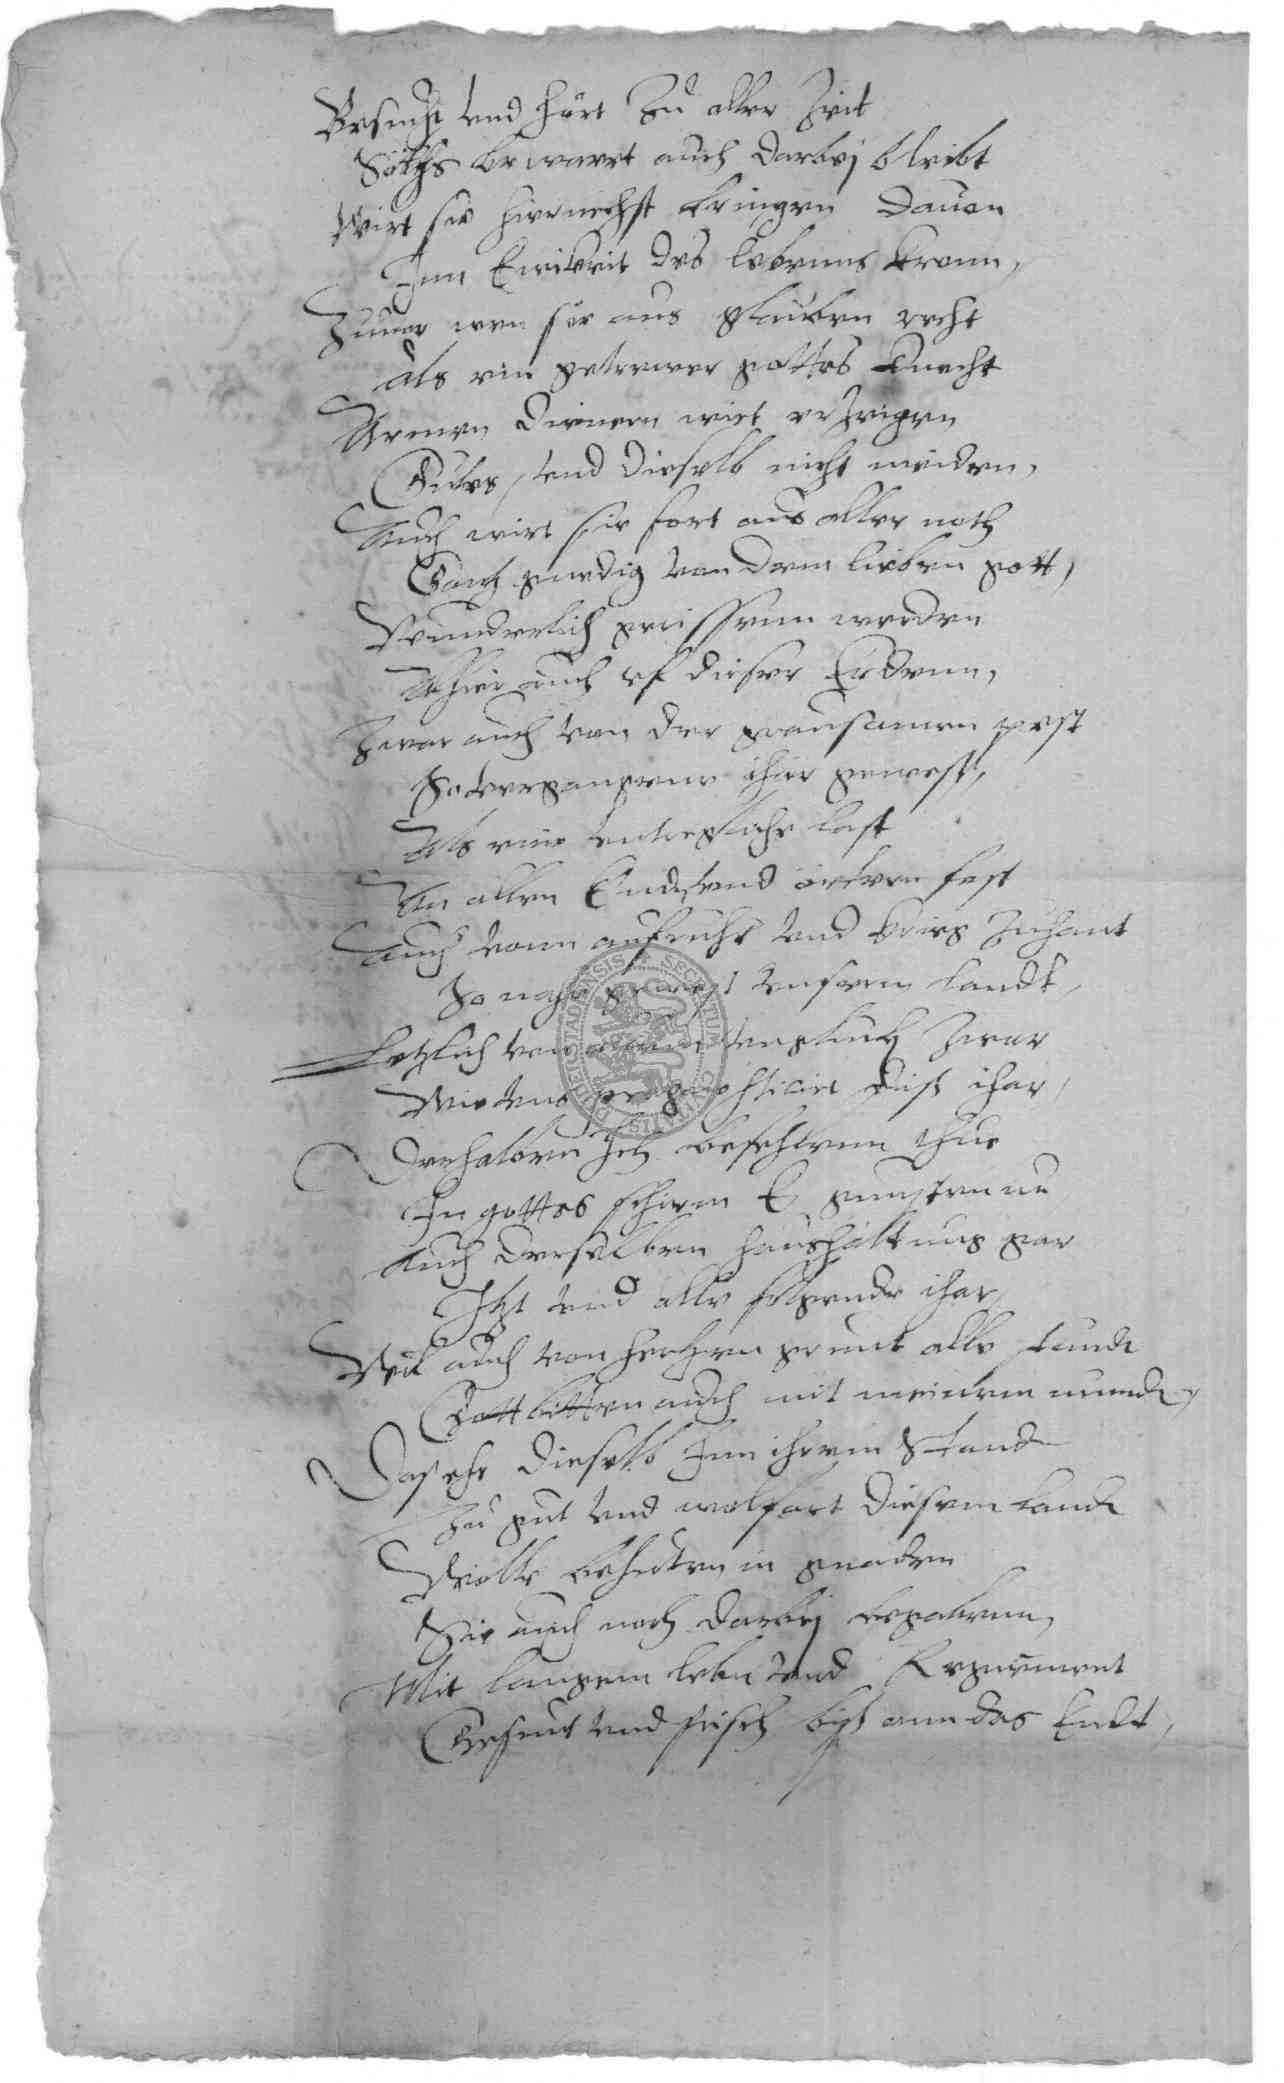 Besucht vnd hört Zu aller Zeit
Solchs bewaret auch darbej bleibt
Wirt sie hiernechst bringen dauon
Inn Ewikeit des lebenns kronn,
Zuuor wen sie aus glauben recht
Als ein getrewer gottes knecht
Armen dienern wirt erZeigen
Gutes, vnd dieselb nicht meiden,
Auch wirt sie fort aus aller noth
Gantz gnedig von dem lieben gott,
Wunderlich gerissenn werden
Alhier auch vf dieser Erdenn,
Zwar auch von der grausamen pest
So vergangene ihar gewest,
Als eine vntregliche last
An allen Endt vnd örtern fast
Auch vonn aufruhr vnd krieg Zuhant
So nahe gewest vnserm landt,
Letzlich von allem vngluck Zwar
Wie vns prognosticirt dist ihar,
Derhalben Ich befehlenn thue
In gottes schirm E gunsten nu
Auch derselben haushaltung gar
Itzt vnd alle folgende ihar,
Wil auch von hertzen grunt alle stundt
Gott bitten auch mit meinem mundt,
Das ehr dieselb Inn ihrem Stande
Zu gut vnd wolfart diesem landt
Wolle behuten in gnaden
Sie auch noch darbej begabenn,
Mit langem leben vnd Regiment
Gesunt vnd frisch bis ann das Endt,
SECRETUM CIVITATIS